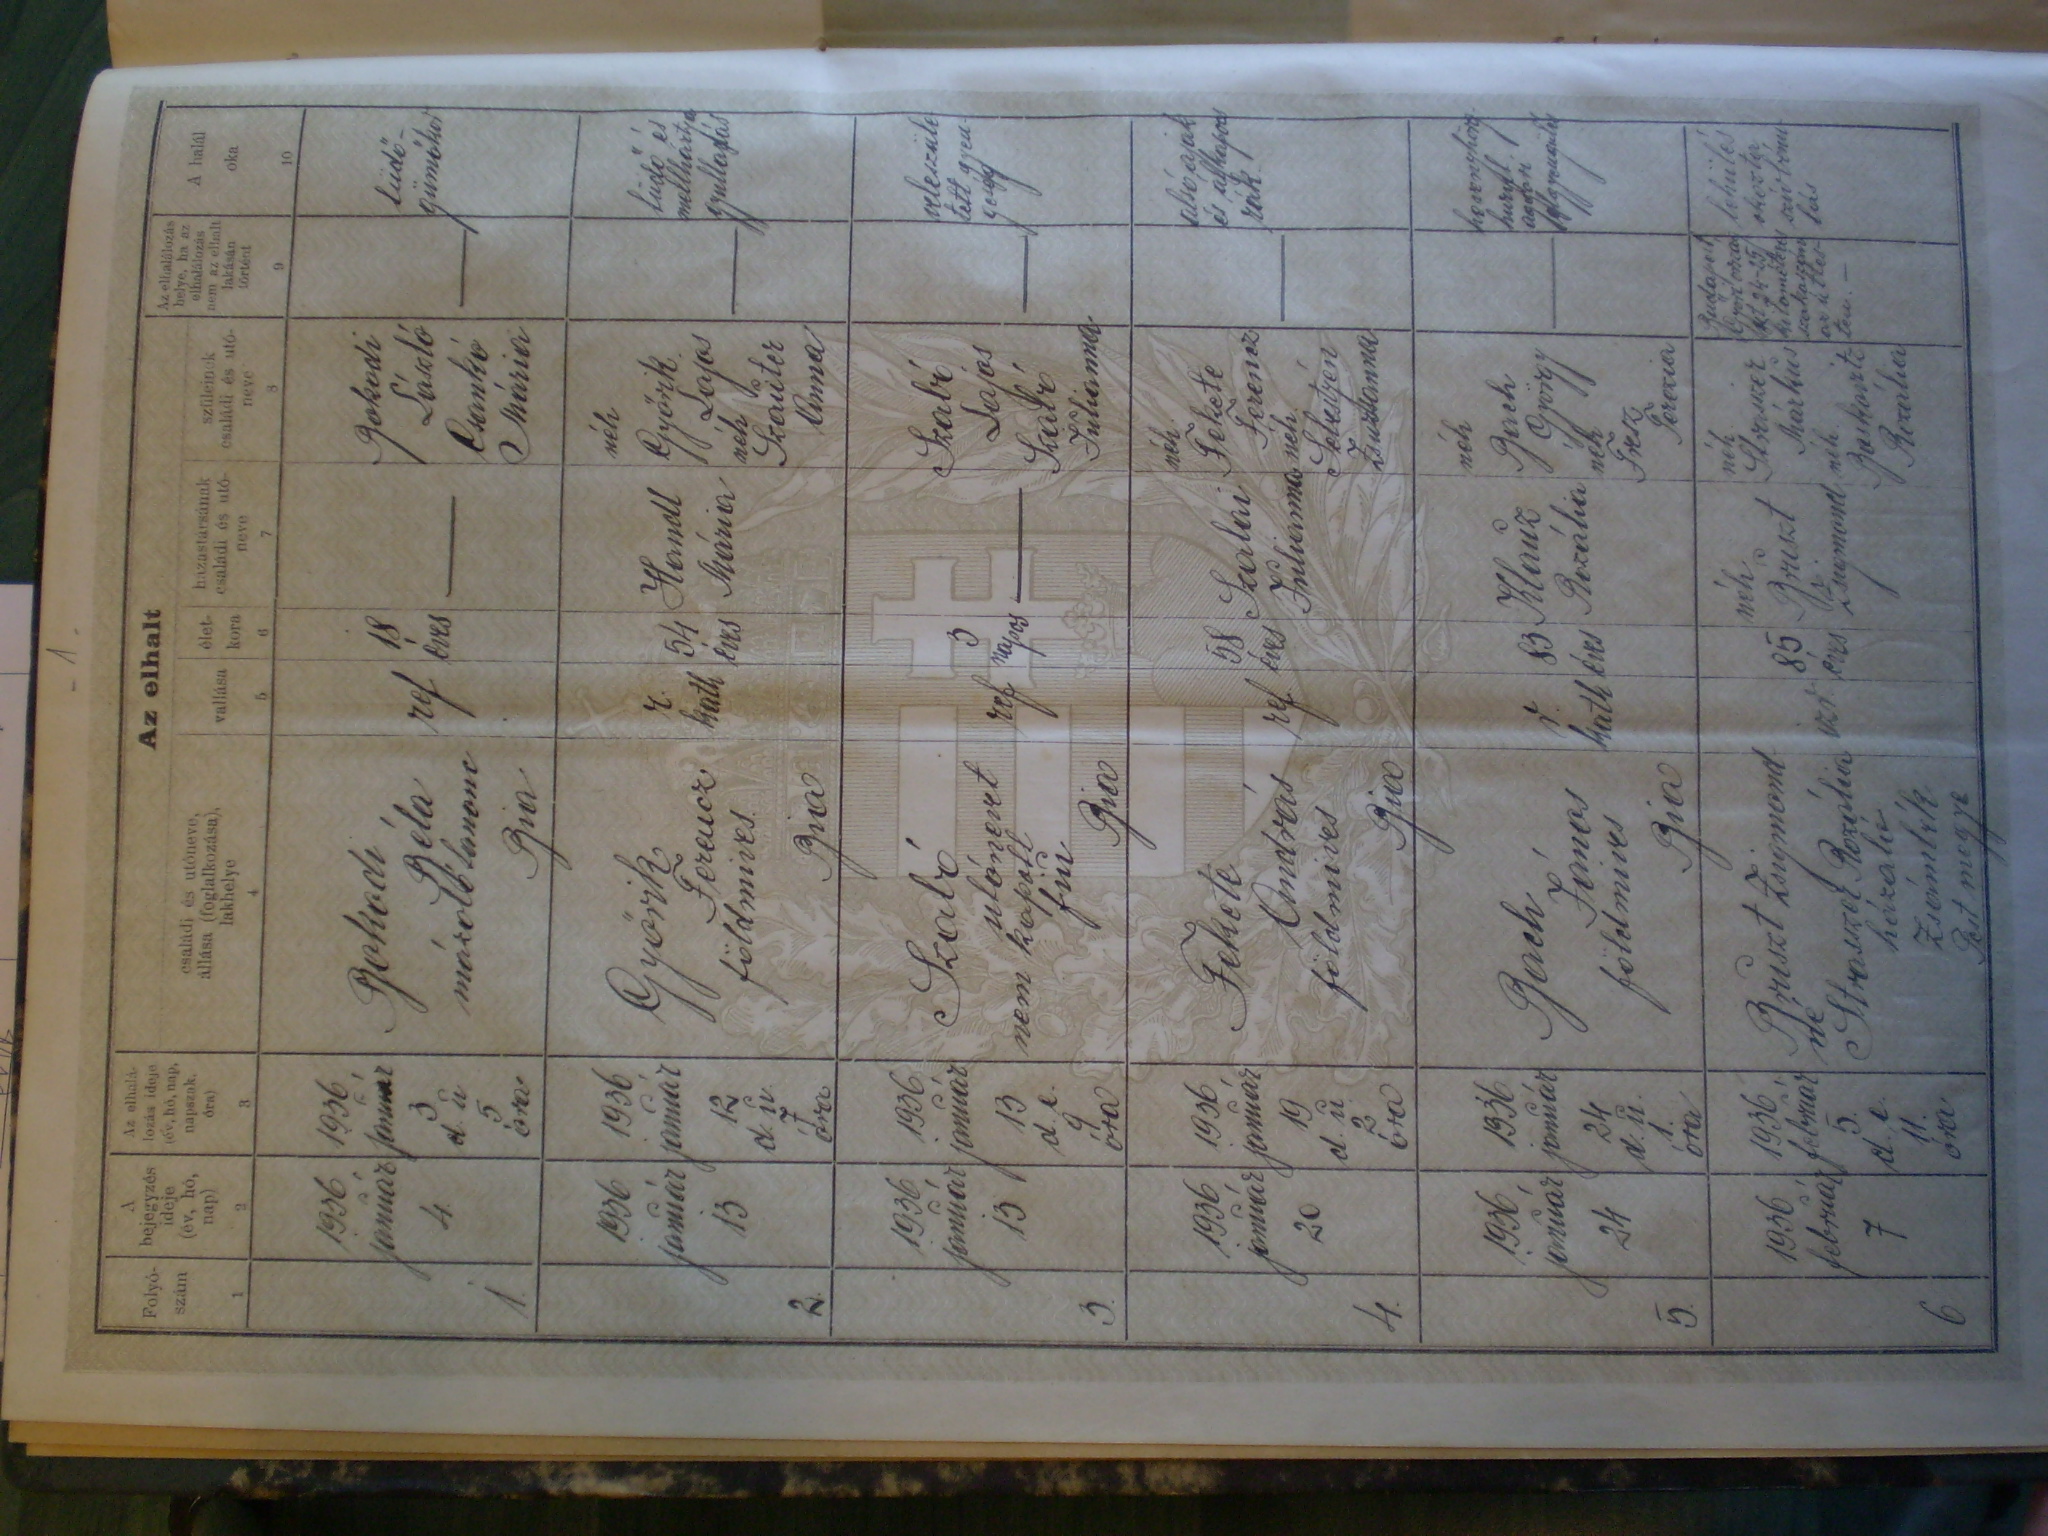 - 1 -
Az elhalt
Folyó-
szám
A
bejegyzés
ideje
(év, hó,
nap)
Az elhalá-
lozás ideje
(év, hó, nap,
napszak,
óra)
családi és utóneve,
állása (foglalkozása),
lakhelye
vallása
élet-
kora
házastársának
családi és utó-
neve
szüleinek
családi és utó-
neve
Az elhalálozás
helye, ha az
elhalálozás
nem az elhalt
lakásán
történt
A halál
oka
1
2
3
4
5
6
7
8
9
10
1.
1936
január
4.
1936
január
3
d. u
5
óra
Bokodi
Béla
lanonc
Bia
ref
18
éves
—
Bokodi
László
Csankó
Mária
—
tüdő-
gümőkór
2.
1936
január
13
1936
január
12
d. u.
7
óra
Györik
Ferencz
földmives
Bia
r.
kath
54
éves
Handl
Mária
néh
Györik
Lajos
néh
Szauter
Anna
—
tüdő és
mellhártya
gyulladás
3.
1936
január
13
1936
január
13
d. e.
9
óra
Szabó
utónevet
nem kapott
fiú
Bia
ref
3
napos
—
Szabó
Lajos
Szabó
Julianna
—
veleszüle
tett gyen-
geség
4.
1936
január
20
1936
január
19
d. u.
2
óra
Fekete
András
földmives
Bia
ref
58
éves
Szalai
Julianna
néh.
Fekete
Ferencz
néh.
Sebestyén
Zsuzsanna
—
alsó ajak
és állkapocs
rák
5.
1936
január
24
1936
január
24
d. u.
1.
óra
Bach
János
földmives
Bia
r.
kath
83
éves
Klauz
Rozália
néh
Bach
György
néh
Terezia
—
6
1936
február
7
1936
február
5.
d. e.
11.
óra
Bruszt Zsigmond
né
Straszer Rozália
házaló
Zsámbék
Pest megye
izr
85
éves
néh
Bruszt
Zsigmond
néh
Straszer
Márkus
néh.
Rozália
Budapest
kilométer
szakaszon
lehülés
okozta
szívbénu-
lás